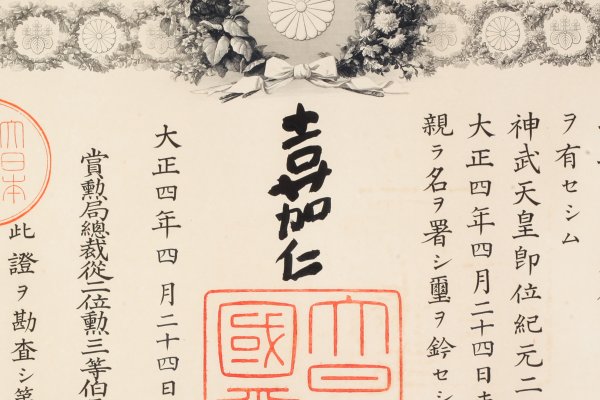 ヲ有セシム
神武天皇卽位紀元二
大正四年四月二十四日
親ラ名ヲ署シ璽ヲ鈐セシ
嘉仁
大日
國
大正四年四月二十四日
賞勲局總裁從二位勲三等伯
此證ヲ勘査シ第
大日本